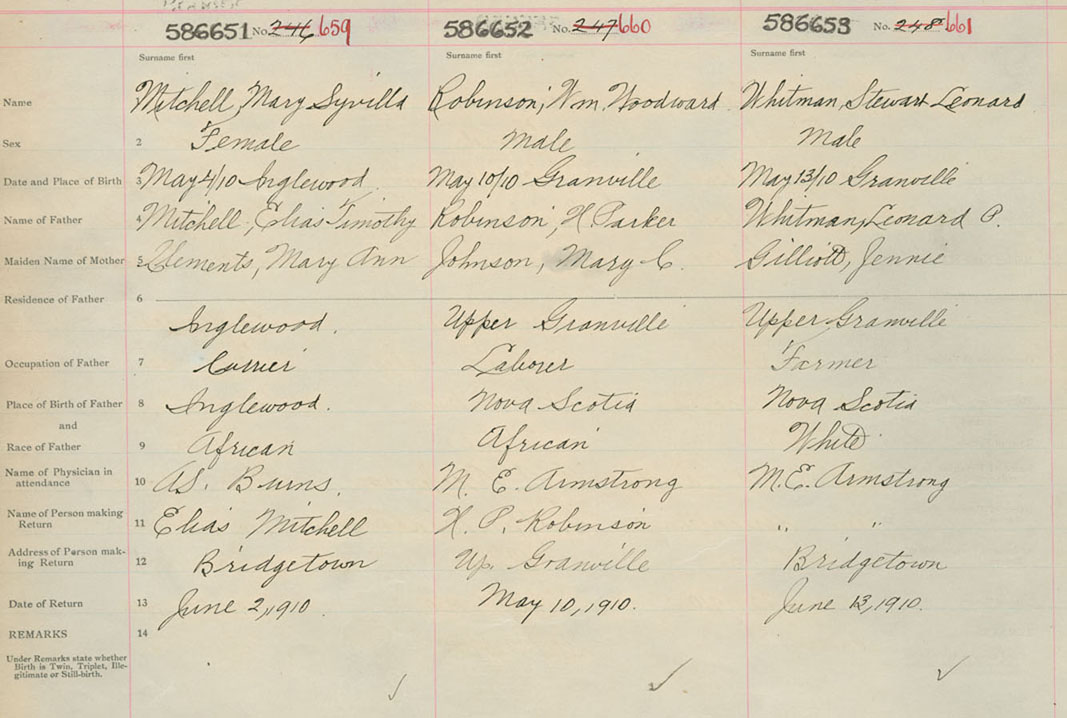 586651 No. 246 659 586652 No. 247 660 586653 No. 248 661
Surname first Surname first Surname first
Name Mitchell, Mary Syvilla Robinson, Wm. Woodward Whitman, Stewart Leonard
Sex 2 Female Male Male
Date and Place of Birth 3 May 4/10 Inglewood May 10/10 Granville May 13/10 Granville
Name of Father 4 Mitchell, Elias Timothy Robinson, H. Parker Whitman, Leonard P.
Maiden Name of Mother 5 Clements, Mary Ann Johnson, Mary C. Gilliott, Jennie
Residence of Father 6
Inglewood. Upper Granville Upper Granville
Occupation of Father 7 Laborer Farmer
Place of Birth of Father 8 Inglewood. Nova Scotia Nova Scotia
and
Race of Father 9 African African White
Name of Physician in
attendance 10 A.S. Burns. M. E. Armstrong M. E. Armstrong
Name of Person making
Return 11 Elias Mitchell H. P. Robinson " "
Address of Person mak-
ing Return 12 Bridgetown Up. Granville Bridgetown
Date of Return 13 June 2, 1910 May 10, 1910. June 13, 1910.
REMARKS 14
Under Remarks state whether
Birth is Twin, Triplet, Ille-
gitimate or Still-birth.